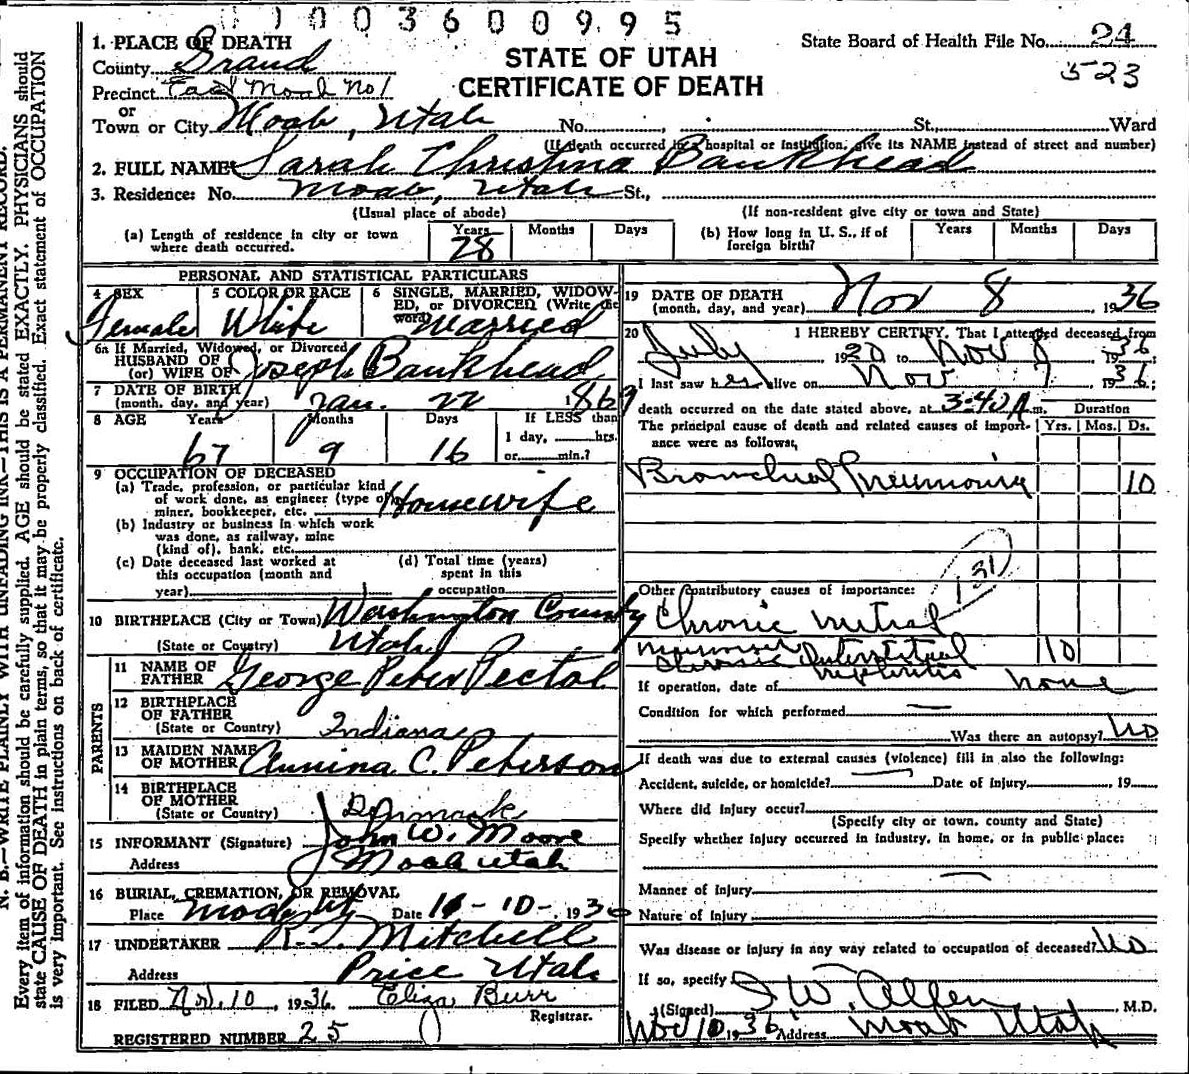 1003600995
1. PLACE OF DEATH
County Grand
Precinct East Moab No 1
or
Town or City Moab, Utah No. St., Ward
STATE OF UTAH
CERTIFICATE OF DEATH
State Board of Health File No. 24
523
(If death occurred in a hospital or institution, give its NAME instead of street and number)
2. FULL NAME Sarah Christina Bankhead
3. Residence: No. Moab, Utah St.,
(Usual place of abode) (If non-resident give city or town and State)
(a) Length of residence in city or town where death occurred. Years 28 Months Days
(b) How long in U. S., if of foreign birth? Years Months Days
PERSONAL AND STATISTICAL PARTICULARS
4 SEX Female
5 COLOR OR RACE White
6 SINGLE, MARRIED, WIDOWED, or DIVORCED (Write the word) Married
6a If Married, Widowed, or Divorced
HUSBAND OF
(or) WIFE OF Joseph Bankhead
7 DATE OF BIRTH
(month, day, and year) Jan. 22 1869
8 AGE Years 67 Months 9 Days 16 If LESS than
1 day, hrs.
or min.?
9 OCCUPATION OF DECEASED
(a) Trade, profession, or particular kind
of work done, as engineer (type of
miner, bookkeeper, etc. Housewife
(b) Industry or business in which work
was done, as railway, mine
(kind of), bank, etc.
(c) Date deceased last worked at
this occupation (month and
year)
(d) Total time (years)
spent in this
occupation
10 BIRTHPLACE (City or Town) Washington County
(State or Country) Utah
PARENTS
11 NAME OF
FATHER George Peter Pectol
12 BIRTHPLACE
OF FATHER
(State or Country) Indiana
13 MAIDEN NAME
OF MOTHER Annina C. Peterson
14 BIRTHPLACE
OF MOTHER
(State or Country) Denmark
15 INFORMANT (Signature) John W. Moore
Address Moab Utah
16 BURIAL, CREMATION, OR REMOVAL
Place Moab Date 11-10-1936
17 UNDERTAKER Mitchell
Address Price Utah
18 FILED Nov. 10, 1936 Eliza Burr
Registrar.
REGISTERED NUMBER 25
19 DATE OF DEATH
(month, day, and year) Nov 8 1936
20 I HEREBY CERTIFY, That I attended deceased from
July 1920 to Nov 1936;
I last saw her alive on Nov 7 1936;
death occurred on the date stated above, at 3:40 A.m.
The principal cause of death and related causes of importance were as follows:
Duration
Yrs. Mos. Ds.
Bronchial Pneumonia 10
131
Other contributory causes of importance:
Chronic Mitral
Chronic Interstitial 10
Nephritis
If operation, date of none
Condition for which performed —
Was there an autopsy? No
If death was due to external causes (violence) fill in also the following:
Accident, suicide, or homicide? Date of injury 19
Where did injury occur?
(Specify city or town, county and State)
Specify whether injury occurred in industry, in home, or in public place:
Manner of Injury
Nature of Injury
Was disease or injury in any way related to occupation of deceased? No
If so, specify
(Signed) I W. Allen, M.D.
Nov 10 1936 Address Moab Utah
N. B.—WRITE PLAINLY WITH UNFADING INK—THIS IS A PERMANENT RECORD.
Every item of information should be carefully supplied. AGE should be stated EXACTLY. PHYSICIANS should
state CAUSE OF DEATH in plain terms, so that it may be properly classified. Exact statement of OCCUPATION
is very important. See instructions on back of certificate.